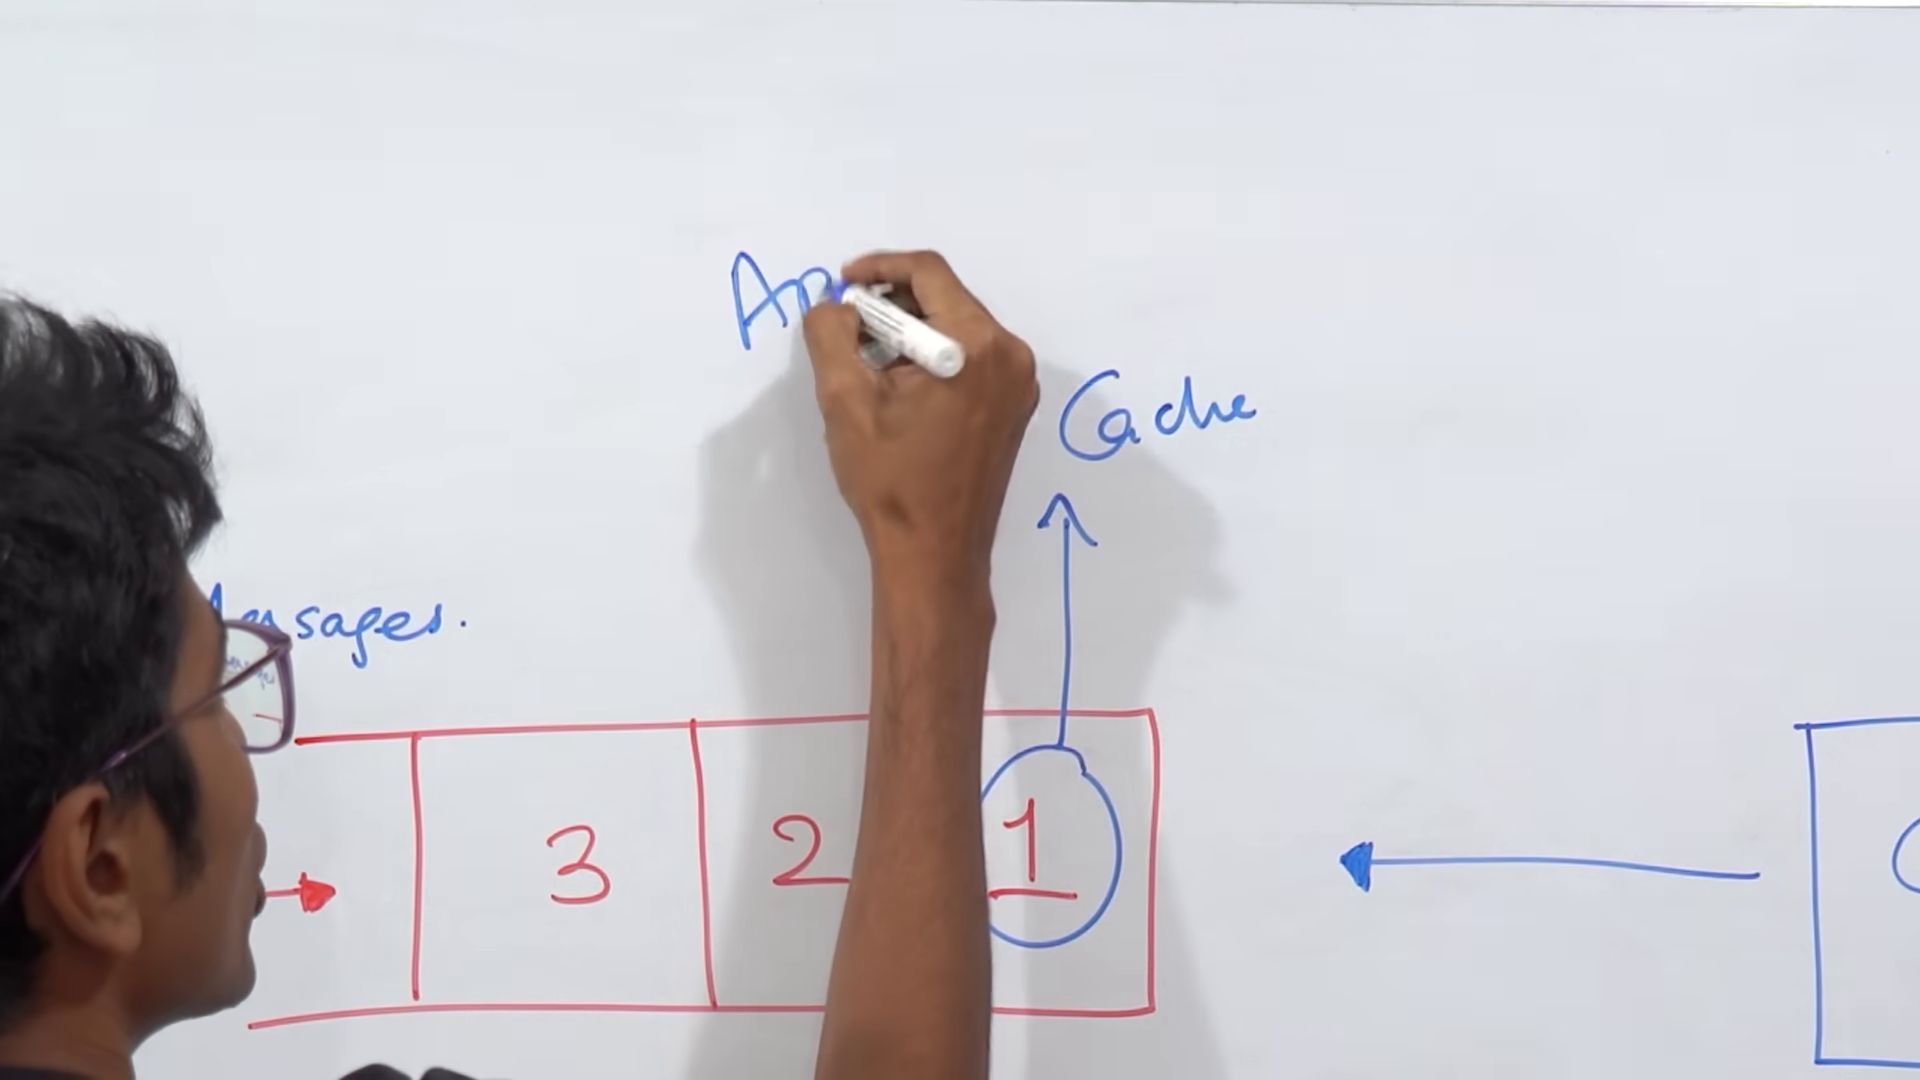 Ap
Cache
Messages.
3 2 1